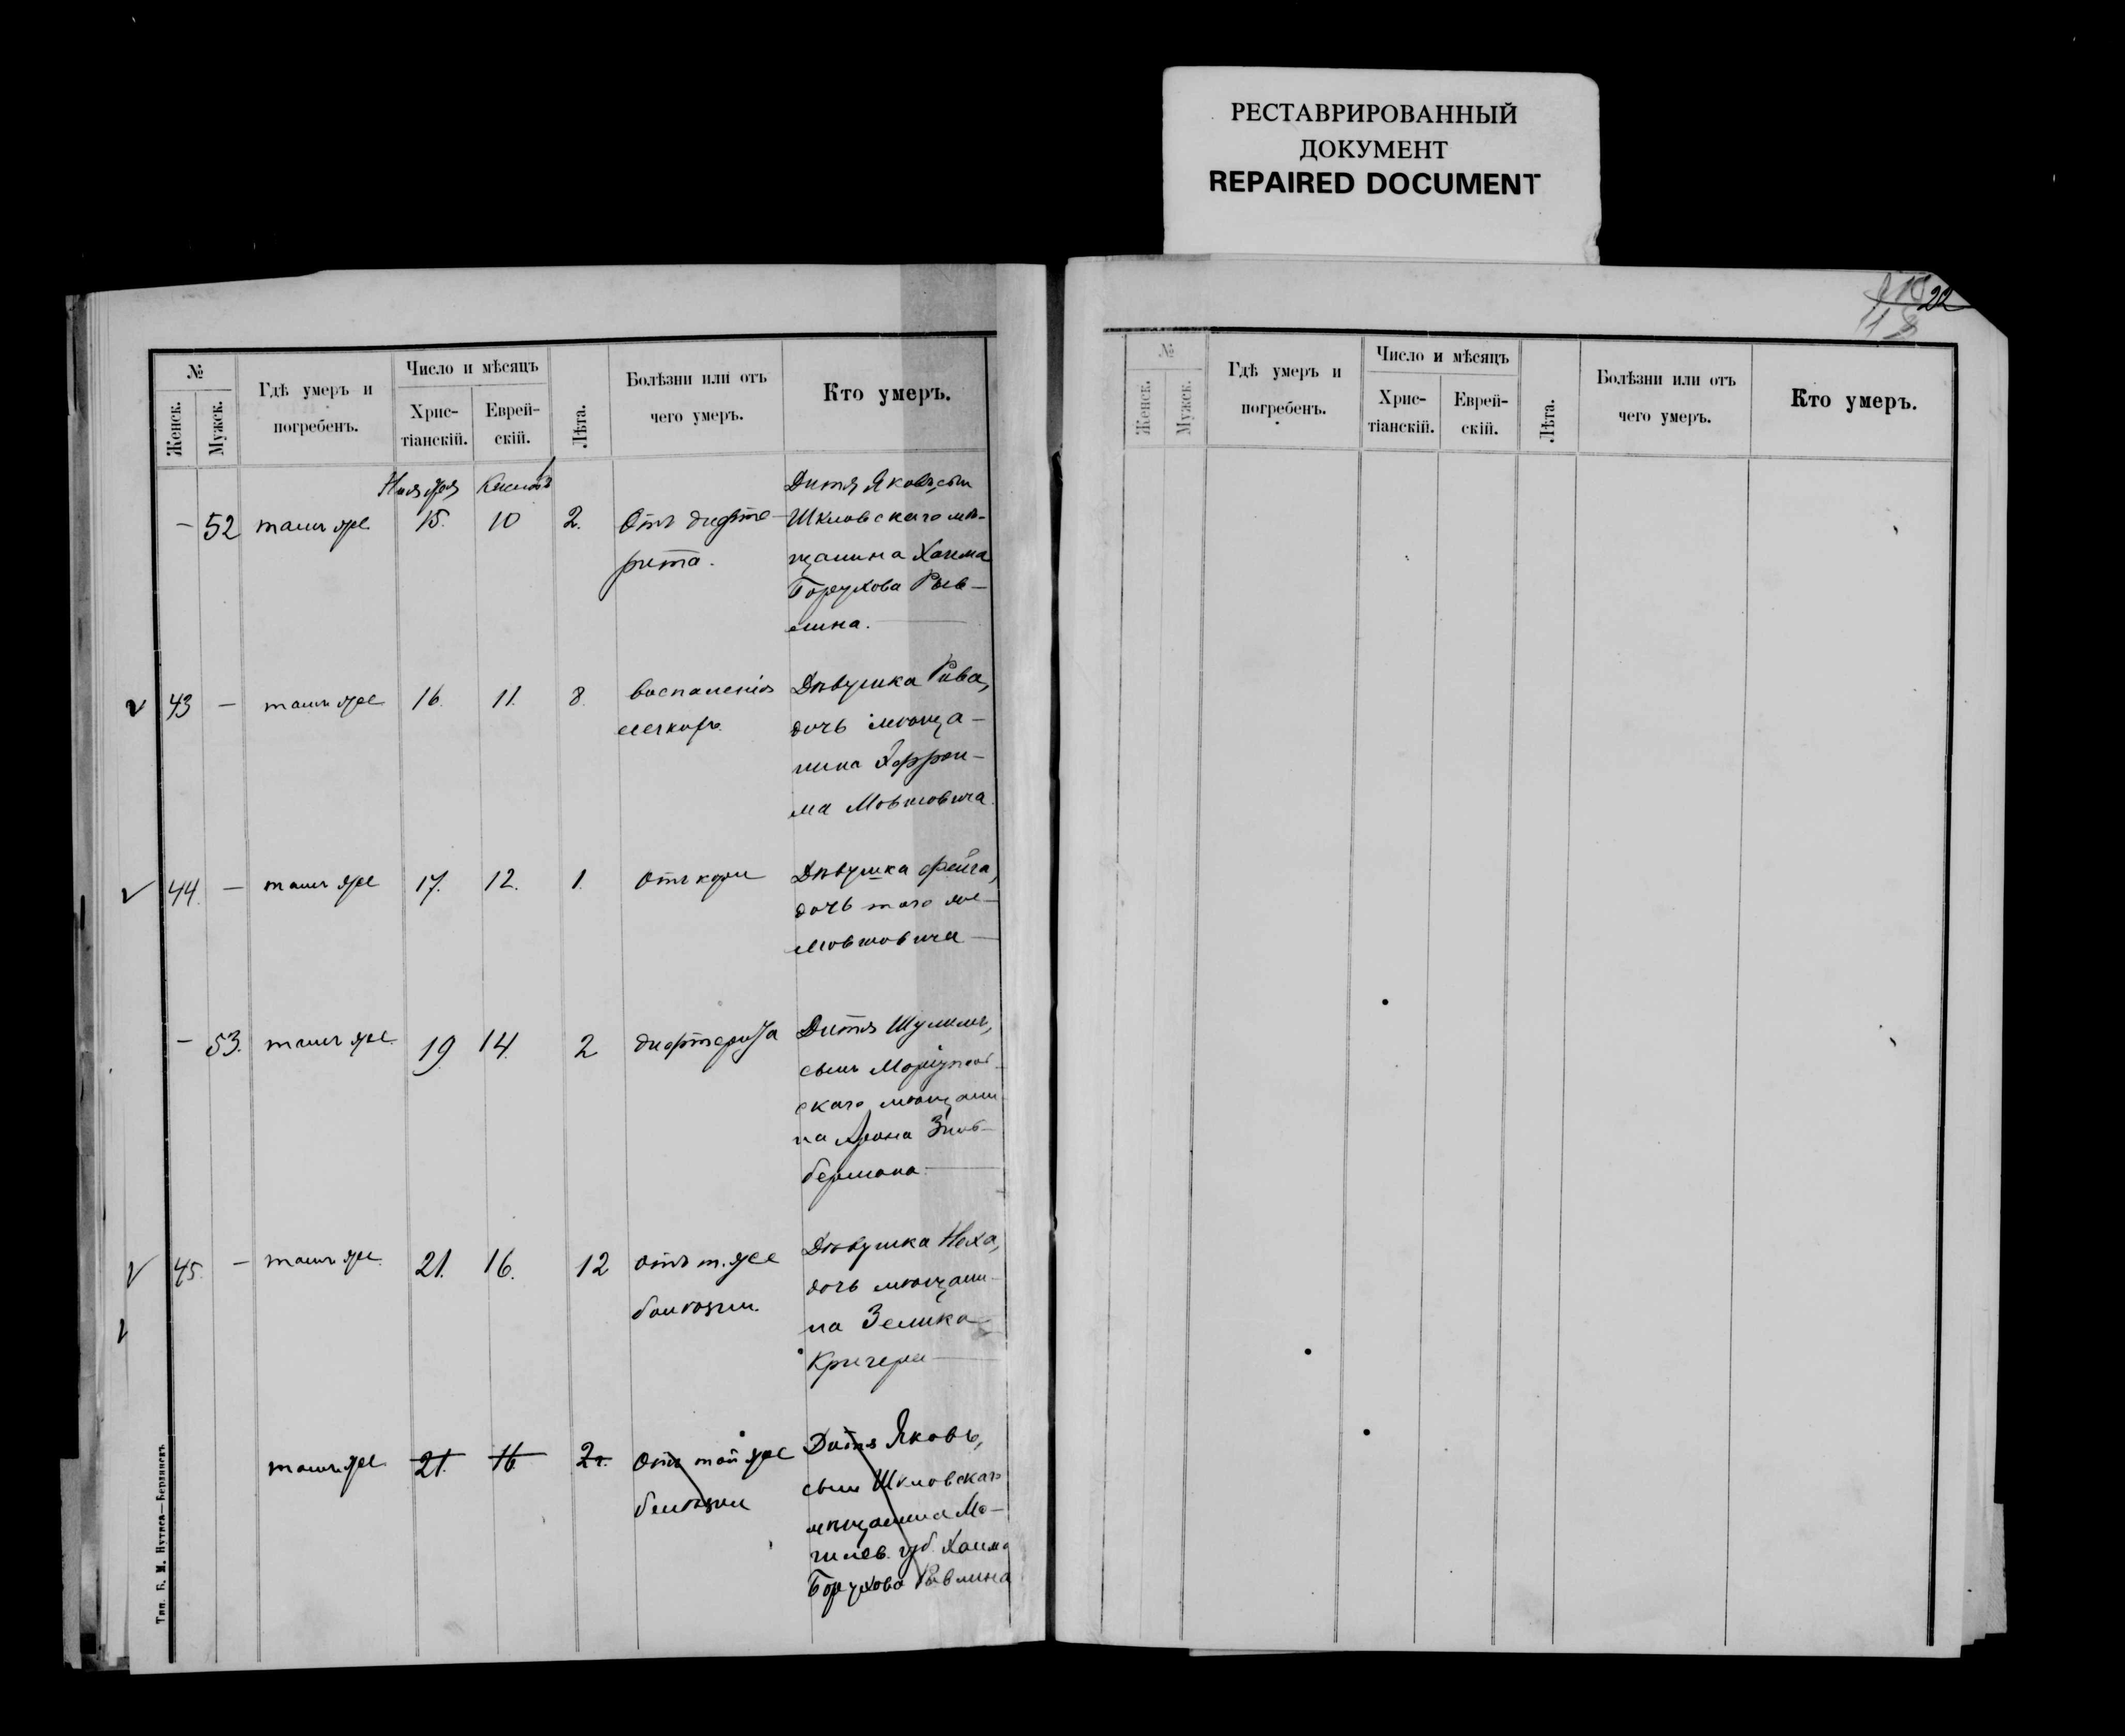 РЕСТАВРИРОВАННЫЙ
ДОКУМЕНТ
REPAIRED DOCUMENT
22
118
№
Женск.
Мужск.
Гдѣ умеръ и
погребенъ.
Число и мѣсяцъ
Хрис-
тіанскій.
Еврей-
скій.
Лѣта.
Болѣзни или отъ
чего умеръ.
Кто умеръ.
Ноября
— 52 тамъ же 15. 10 2. Отъ дифте-
рита.
Дитя Яковъ, сынъ
Шкловскаго мѣ-
щанина Хаима
Борухова Рыв-
лина.
43 — тамъ же 16. 11. 8. воспаленія
легкихъ.
Дѣвушка Рива,
дочь мѣща-
нина
ма Мовшовича.
44. — тамъ же 17. 12. 1. Отъ кори
Дѣвушка Фейга,
дочь того же
Мовшовича
— 53. тамъ же. 19. 14. 2 дифтерита
Дитя
сынъ Маріуполь-
скаго мѣщани-
на Арона Зиль-
бермана.
45. — тамъ же. 21. 16. 12 отъ т. же
болѣзни.
Дѣвушка Неха,
дочь мѣщани-
на Зелика
Кригера
тамъ же 21. 16 2 г. Отъ той же
болѣзни
Дитя Яковъ,
сынъ Шкловскаго
мѣщанина Мо-
гилев. губ. Хаима
Борухова Рывлина
Тип. Б. М. Нутиса—Бердянскъ.
№
Женск.
Мужск.
Гдѣ умеръ и
погребенъ.
Число и мѣсяцъ
Хрис-
тіанскій.
Еврей-
скій.
Лѣта.
Болѣзни или отъ
чего умеръ.
Кто умеръ.